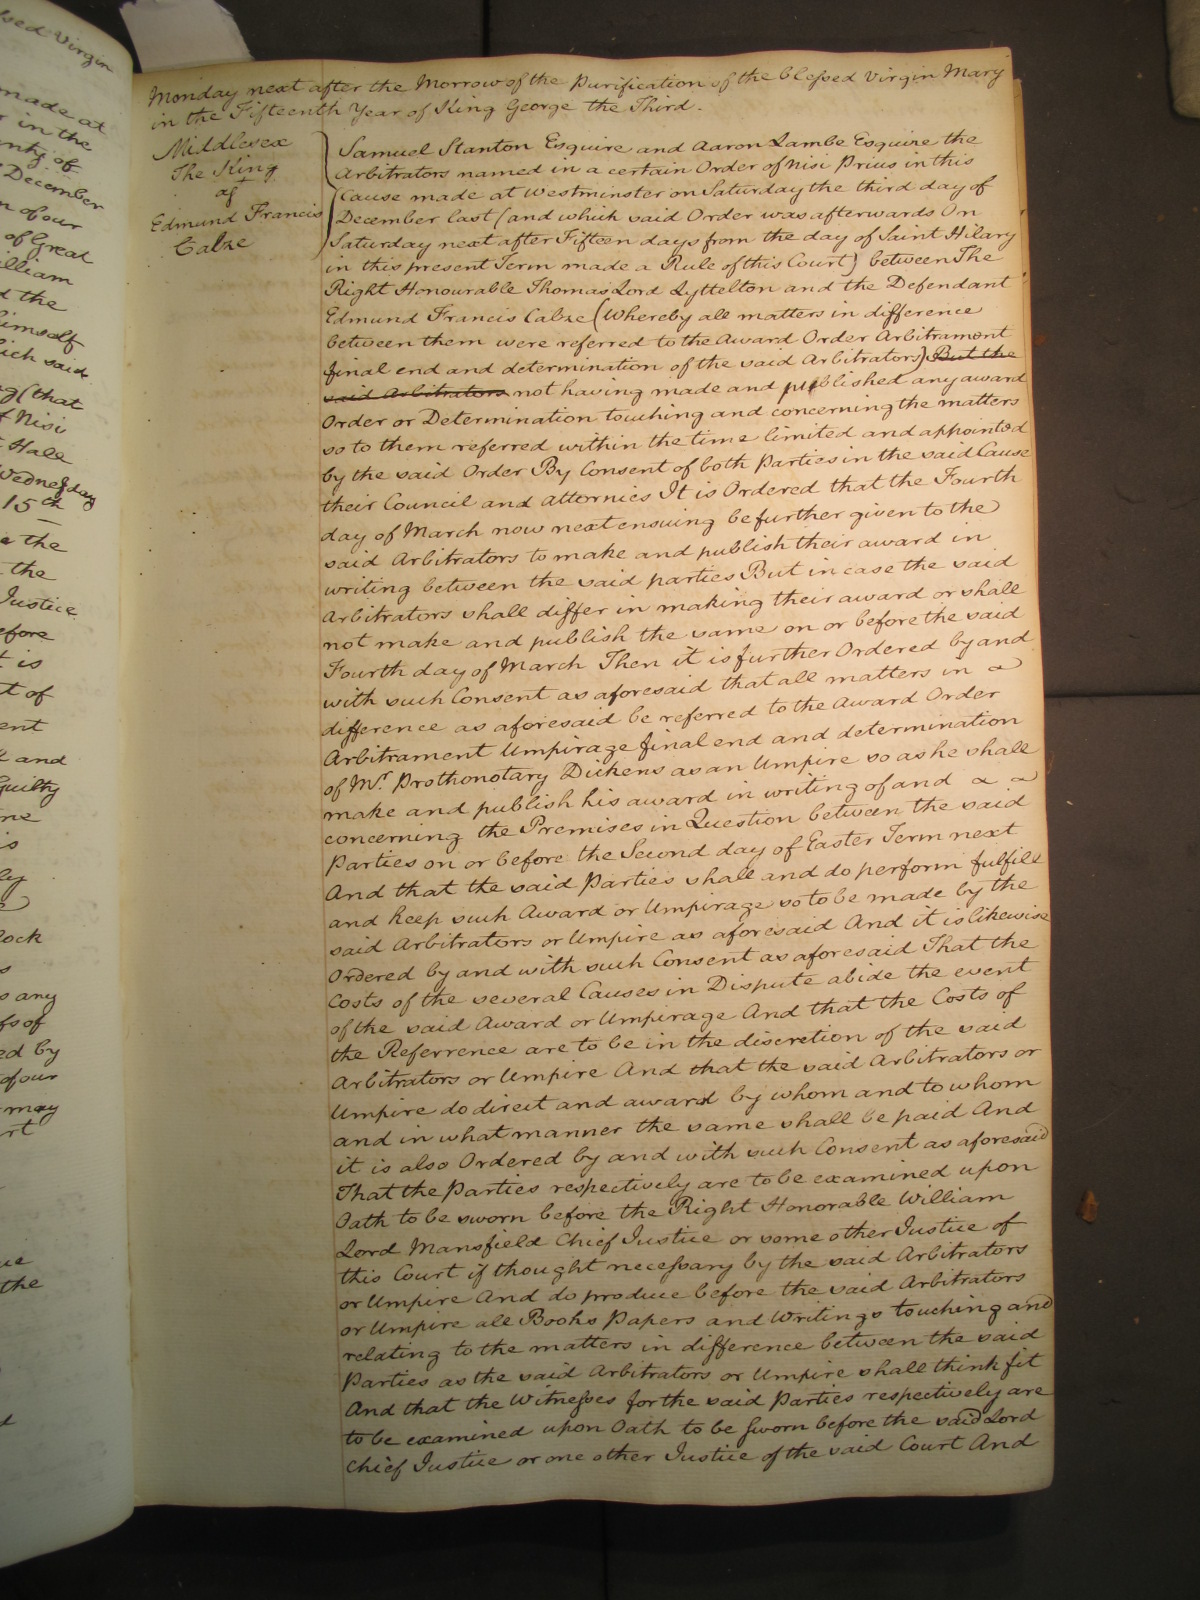 Monday next after the Morrow of the Purification of the blessed Virgin Mary
in the Fifteenth Year of King George the Third.
Middlesex
The King
agt
Edmund Francis
Calze
Samuel Stanton Esquire and Aaron Lambe Esquire the
Arbitrators named in a certain Order of Nisi Prius in this
Cause made at Westminster on Saturday the third day of
December last (and which said Order was afterwards On
Saturday next after Fifteen days from the day of Saint Hilary
in this present Term made a Rule of this Court) between The
Right Honourable Thomas Lord Lyttelton and the Defendant
Edmund Francis Calze (Whereby all matters in difference
between them were referred to the Award Order Arbitrament
final end and determination of the said Arbitrators) But the
said Arbitrators not having made and published any award
Order or Determination touching and concerning the matters
so to them referred within the time limited and appointed
by the said Order By Consent of both Parties in the said Cause
their Council and Attornies It is Ordered that the Fourth
day of March now next ensuing be further given to the
said Arbitrators to make and publish their award in
writing between the said parties But in case the said
Arbitrators shall differ in making their award or shall
not make and publish the same on or before the said
Fourth day of March Then it is further Ordered by and
with such Consent as aforesaid that all matters in
difference as aforesaid be referred to the Award Order
Arbitrament Umpirage final end and determination
of Mr. Prothonotary Dickens as an Umpire so as he shall
make and publish his award in writing of and
concerning the Premises in Question between the said
Parties on or before the Second day of Easter Term next
And that the said Parties shall and do perform fulfill
and keep such Award or Umpirage so to be made by the
said Arbitrators or Umpire as aforesaid And it is likewise
Ordered by and with such Consent as aforesaid That the
Costs of the several Causes in Dispute abide the event
of the said Award or Umpirage And that the Costs of
the Referrence are to be in the discretion of the said
Arbitrators or Umpire And that the said Arbitrators or
Umpire do direct and award by whom and to whom
and in what manner the same shall be paid And
it is also Ordered by and with such Consent as aforesaid
That the Parties respectively are to be examined upon
Oath to be sworn before the Right Honorable William
Lord Mansfield Chief Justice or some other Justice of
this Court if thought necessary by the said Arbitrators
or Umpire And do produce before the said Arbitrators
or Umpire all Books Papers and Writings touching and
relating to the matters in difference between the said
Parties as the said Arbitrators or Umpire shall think fit
And that the Witnesses for the said Parties respectively are
to be examined upon Oath to be sworn before the said Lord
Chief Justice or one other Justice of the said Court And